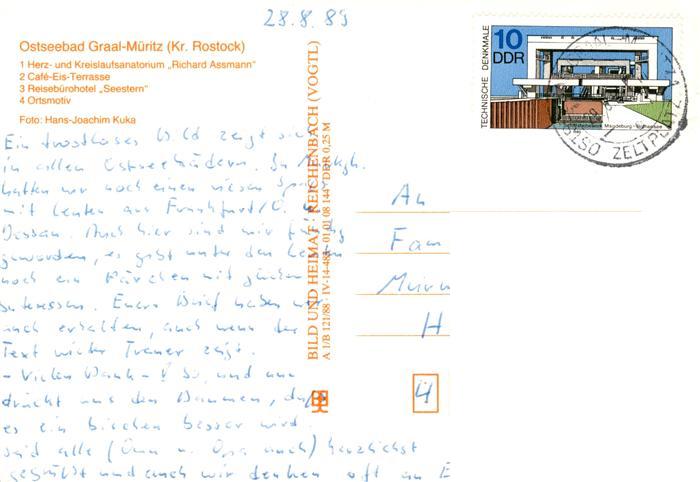 28.8.89
Ostseebad Graal-Müritz (Kr. Rostock)
1 Herz- und Kreislaufsanatorium „Richard Assmann"
2 Café-Eis-Terrasse
3 Reisebürohotel „Seestern"
4 Ortsmotiv
Foto: Hans-Joachim Kuka
TECHNISCHE DENKMALE
10
DDR
ZELTPLATZ
BILD UND HEIMAT · REICHENBACH (VOGTL)
A 1/B 121/88 · IV-14-483 · 01 01 08 144 · DDR 0,25 M
Ein trostloses Bild zeigt sich
in allen Ostseebädern. In
hatten wir noch einen riesen
mit Leuten aus Frankfurt/O. u.
Dessau. Auch hier sind wir
geworden, es gibt unter den
noch ein Pärchen mit
Interessen. Euern Brief haben wir
noch erhalten, auch wenn der
Text wieder Trauer zeigt.
- Vielen Dank - ! So, und nun
drückt uns den Daumen, daß
es ein bischen besser wird.
seid alle (Oma u. Opa auch) herzlichst
gegrüßt und auch wir denken oft an E
An
Fam
H
4